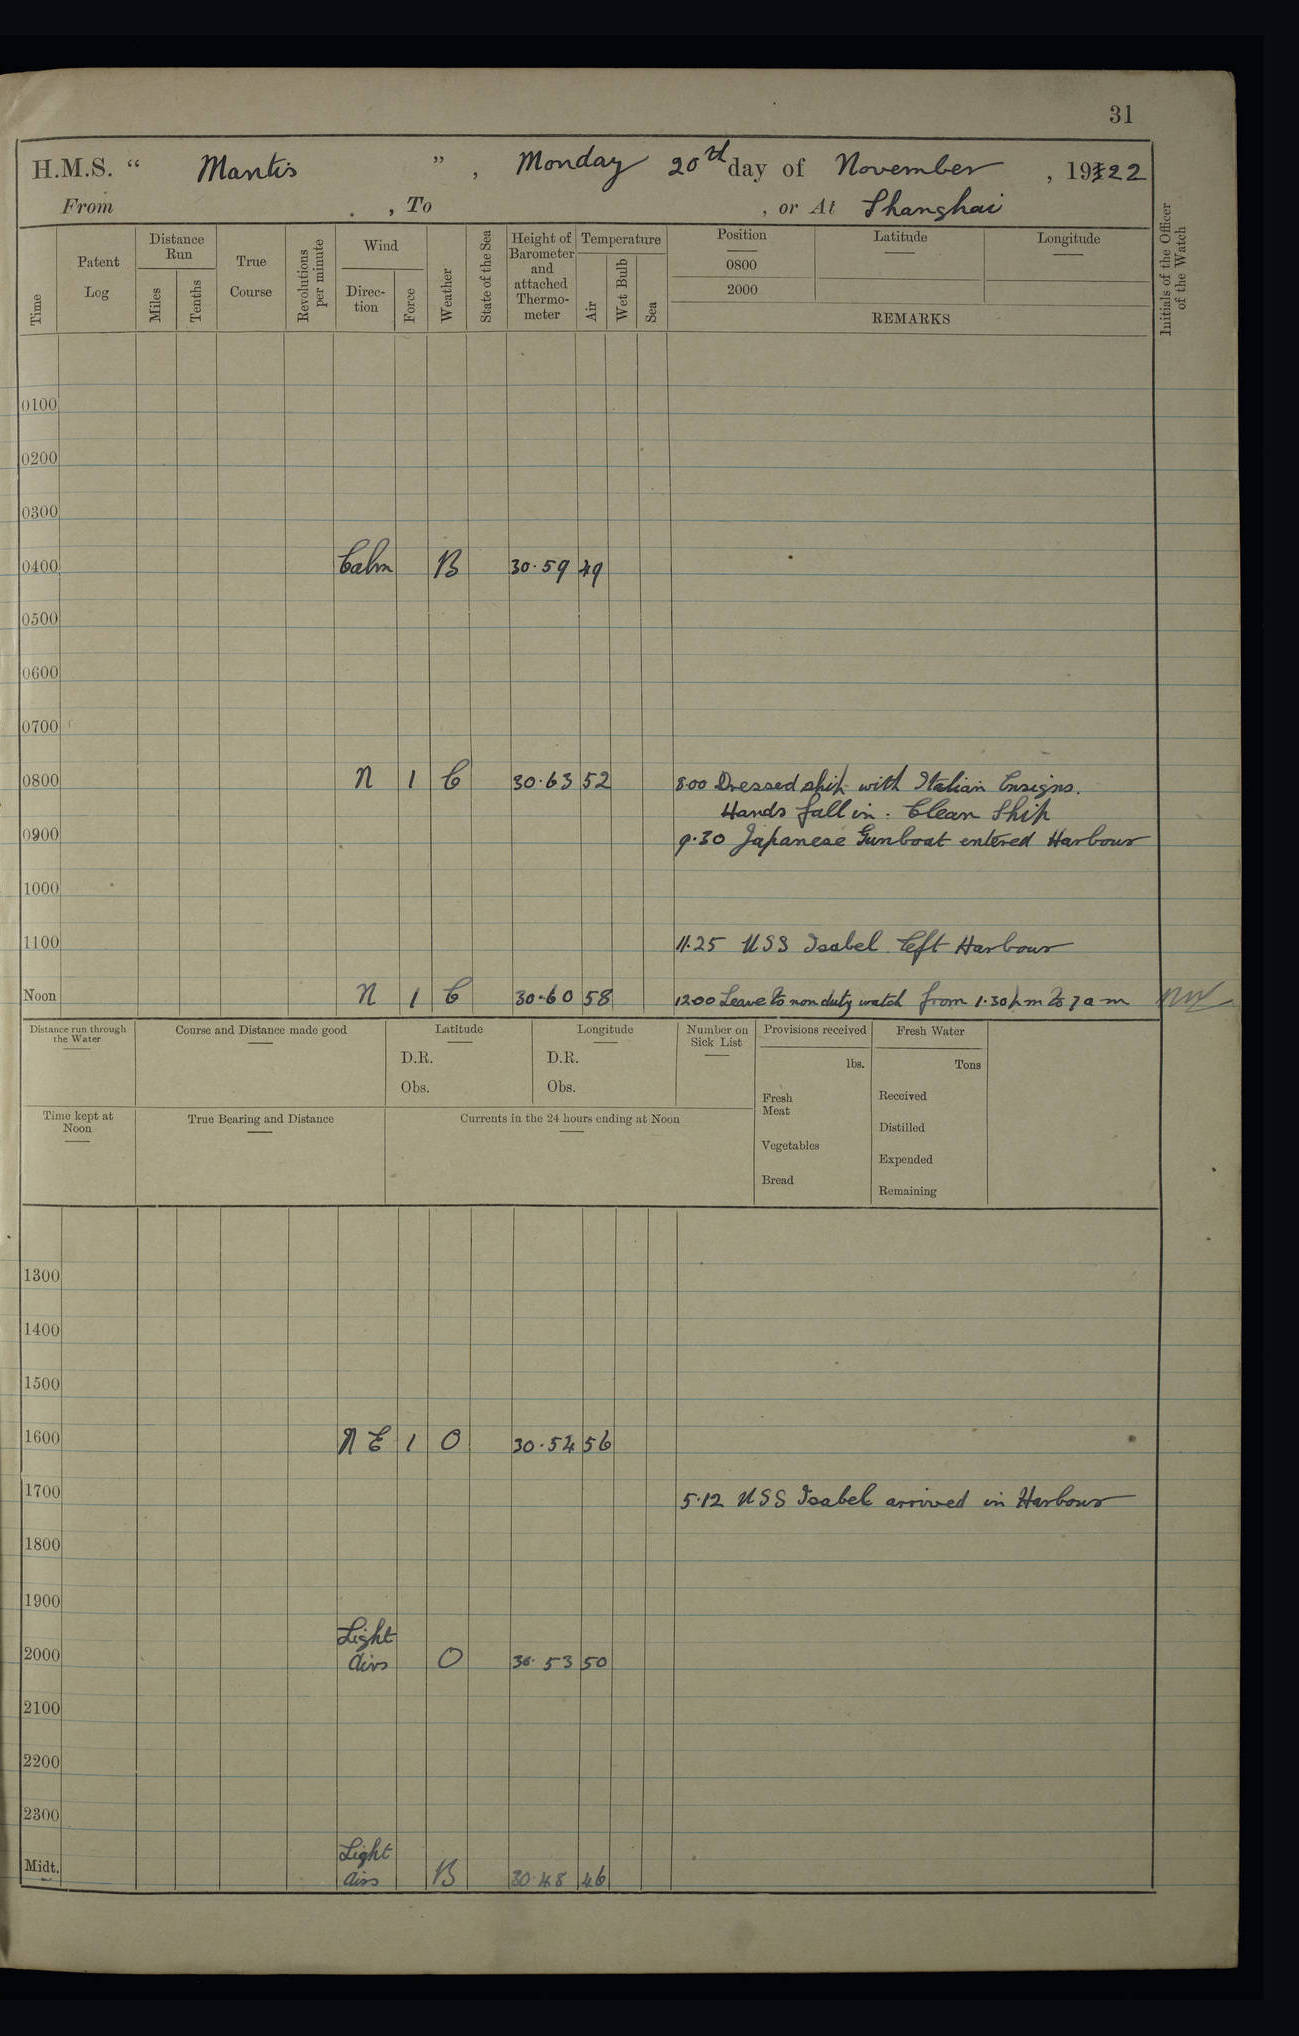 31
H.M.S. “ Mantis ” , Monday 20th day of November , 1922
From , To , or At Shanghai
Time
Patent Log
Distance Run
Miles
Tenths
True Course
Revolutions per minute
Wind
Direc-tion
Force
Weather
State of the Sea
Height of Barometer and attached Thermo-meter
Temperature
Air
Wet Bulb
Sea
Position
0800
2000
Latitude
Longitude
REMARKS
Initials of the Officer of the Watch
0100
0200
0300
0400 Calm B 30.59 49
0500
0600
0700
0800 N 1 C 30.63 52 8.00 Dressed ship with Italian Ensigns.
Hands fall in. Clean Ship
0900 9.30 Japanese Gunboat entered Harbour
1000
1100 11.25 USS Isabel left Harbour
Noon N 1 C 30.60 58 1200 Leave to non duty watch from 1.30 pm to 7 am
Distance run through the Water
Course and Distance made good
Latitude
D.R.
Obs.
Longitude
D.R.
Obs.
Number on Sick List
Provisions received
lbs.
Fresh Meat
Vegetables
Bread
Fresh Water
Tons
Received
Distilled
Expended
Remaining
Time kept at Noon
True Bearing and Distance
Currents in the 24 hours ending at Noon
1300
1400
1500
1600 N E 1 O 30.54 56
1700 5.12 USS Isabel arrived in Harbour
1800
1900
Light
2000 airs O 30.53 50
2100
2200
2300
Light
Midt. airs B 30.48 46